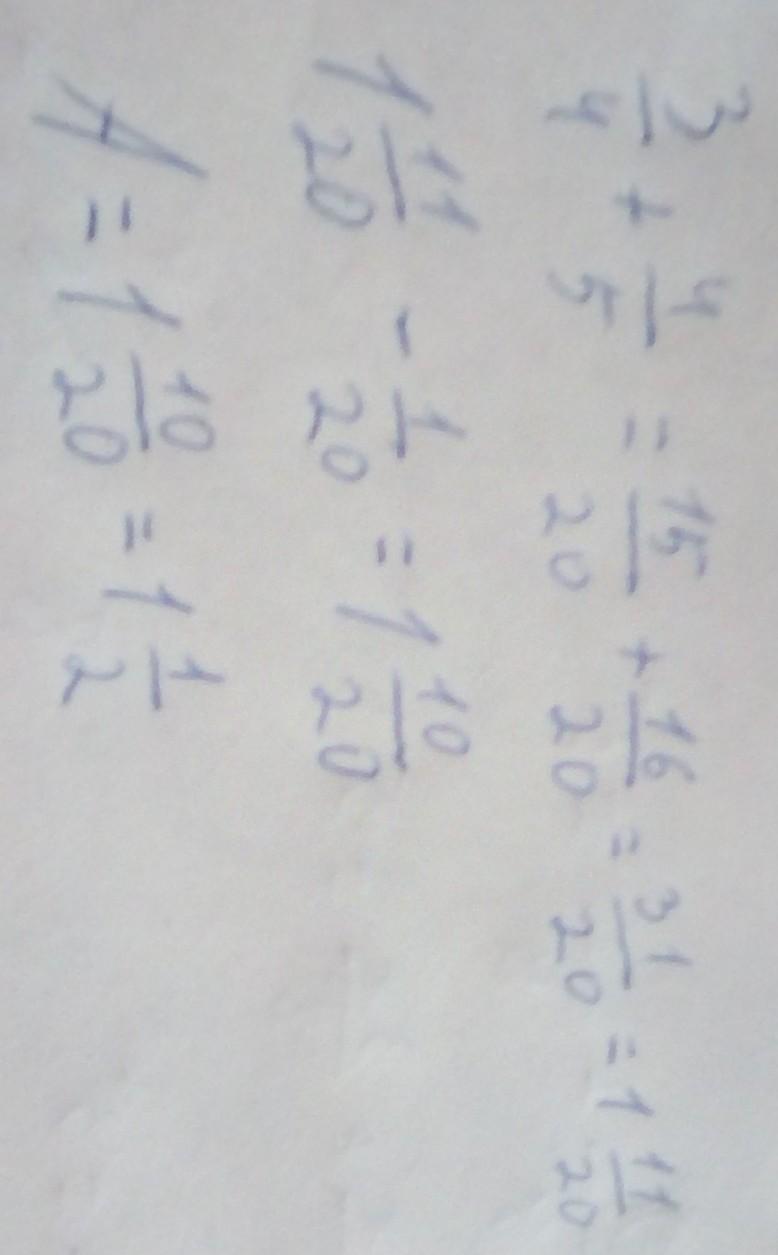 3/4 + 4/5 = 15/20 + 16/20 = 31/20 = 1 11/20
1 11/20 - 1/20 = 1 10/20
A = 1 10/20 = 1 1/2